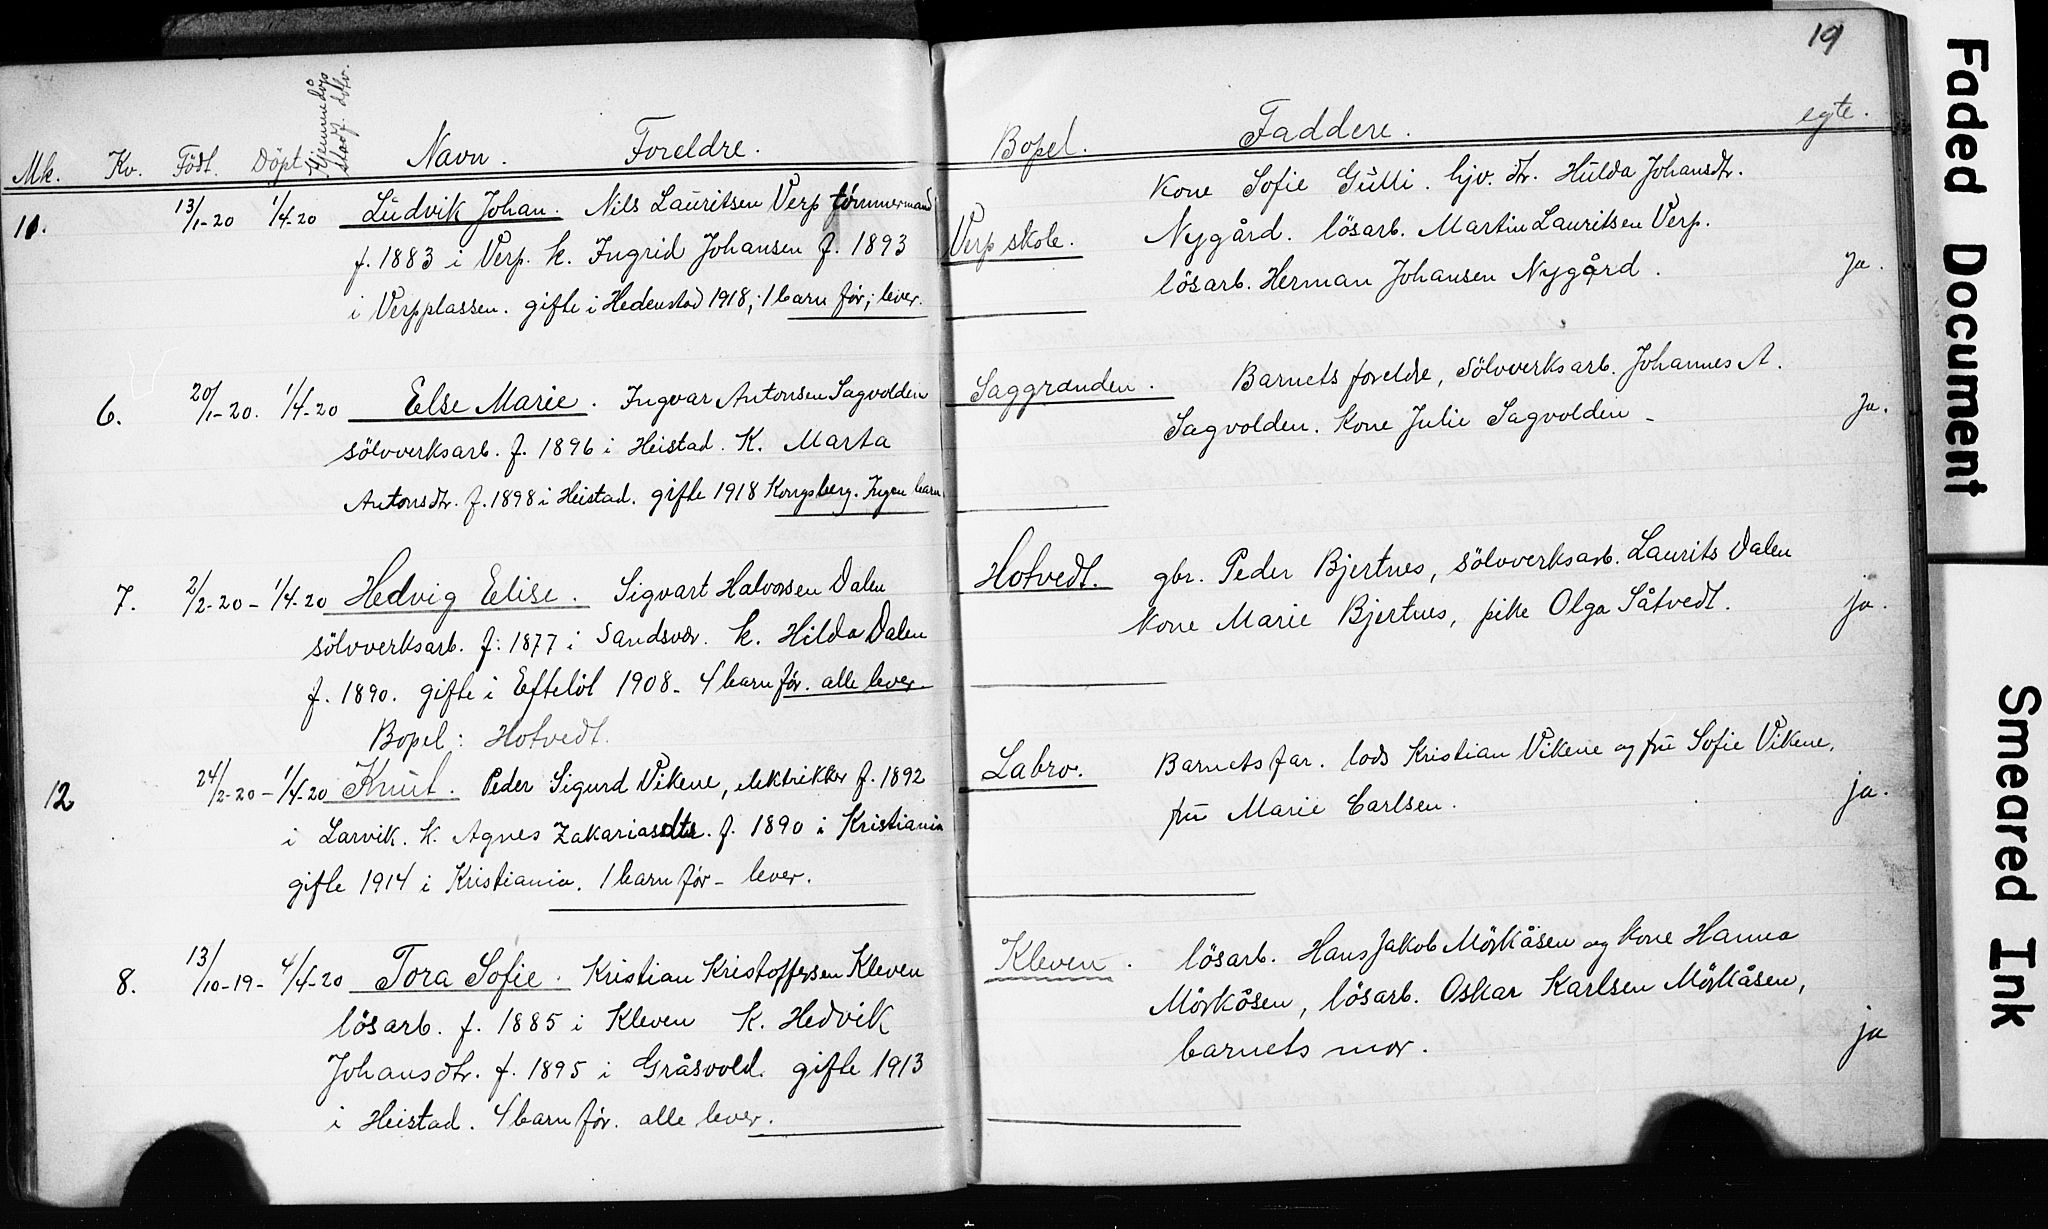 19
Mk. Kv. Födt. Döpt Hjemmedöp stadf. dato. Navn. Foreldre.
Bopel. Faddere. egte.
11. 13/1-20 1/4-20 Ludvik Johan. Nils Lauritsen Verp tömmermand
f. 1883 i Verp. k. Ingrid Johansen f. 1893
i Verpplassen. gifte i Hedenstad 1918, 1 barn för, lever.
Verp skole.
Kone Sofie Gulli. hjv. dtr. Hulda Johansdtr.
Nygård. lösarb. Martin Lauritsen Verp.
lösarb. Herman Johansen Nygård.
Ja.
6. 20/1-20. 1/4-20 Else Marie. Ingvar Antonsen Sagvolden
sölvverksarb. f. 1896 i Heistad. K. Marta
Antonsdtr. f. 1898 i Heistad. gifte 1918 Kongsberg. Ingen barn
Saggrenden.
Barnets foreldre, Sölvverksarb. Johannes A.
Sagvolden. Kone Julie Sagvolden -
Ja.
7. 2/2-20 - 1/4-20 Hedvig Elise. Sigvart Halvorsen Dalen
sölvverksarb. f: 1877 i Sandsvær. k. Hilda Dalen
f. 1890. gifte i Efteløt 1908 - 4 barn før. alle lever.
Bopel: Hotvedt.
Hotvedt.
gbr. Peder Bjertnes, sölvverksarb. Laurits Dalen
Kone Marie Bjertnes, pike Olga Såtvedt.
ja.
12 24/2-20 - 1/4-20 Knut. Peder Sigurd Vikene, elektrikker f. 1892
i Larvik. k. Agnes Zakariasdtr. f. 1890 i Kristiania
gifte 1914 i Kristiania. 1 barn før - lever.
Labro.
Barnets far. lods Kristian Vikene og fru Sofie Vikene,
fru Marie Carlsen.
ja.
8. 13/10-19 - 4/4-20 Tora Sofie. Kristian Kristoffersen Kleven
lösarb. f. 1885 i Kleven K. Hedvik
Johansdtr. f. 1895 i Gråsvold. gifte 1913
i Heistad. 4 barn før. alle lever.
Kleven.
lösarb. Hans Jakob Mörkåsen og kone Hanna
Mörkåsen, lösarb. Oskar Karlsen Mörkåsen,
barnets mor.
ja
Faded Document
Smeared Ink